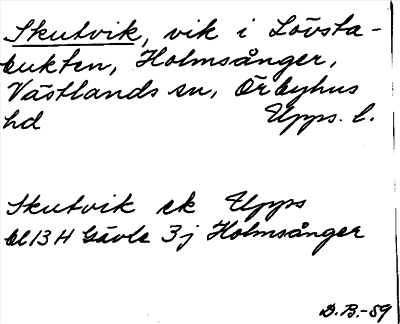 Skutvik, vik i Lövsta-
bukten, Holmsånger,
Västlands sn, Örbyhus
hd Upps. l.
Skutvik ek Upps
bl 13 H Gävle 3j Holmsånger
D.B.-59